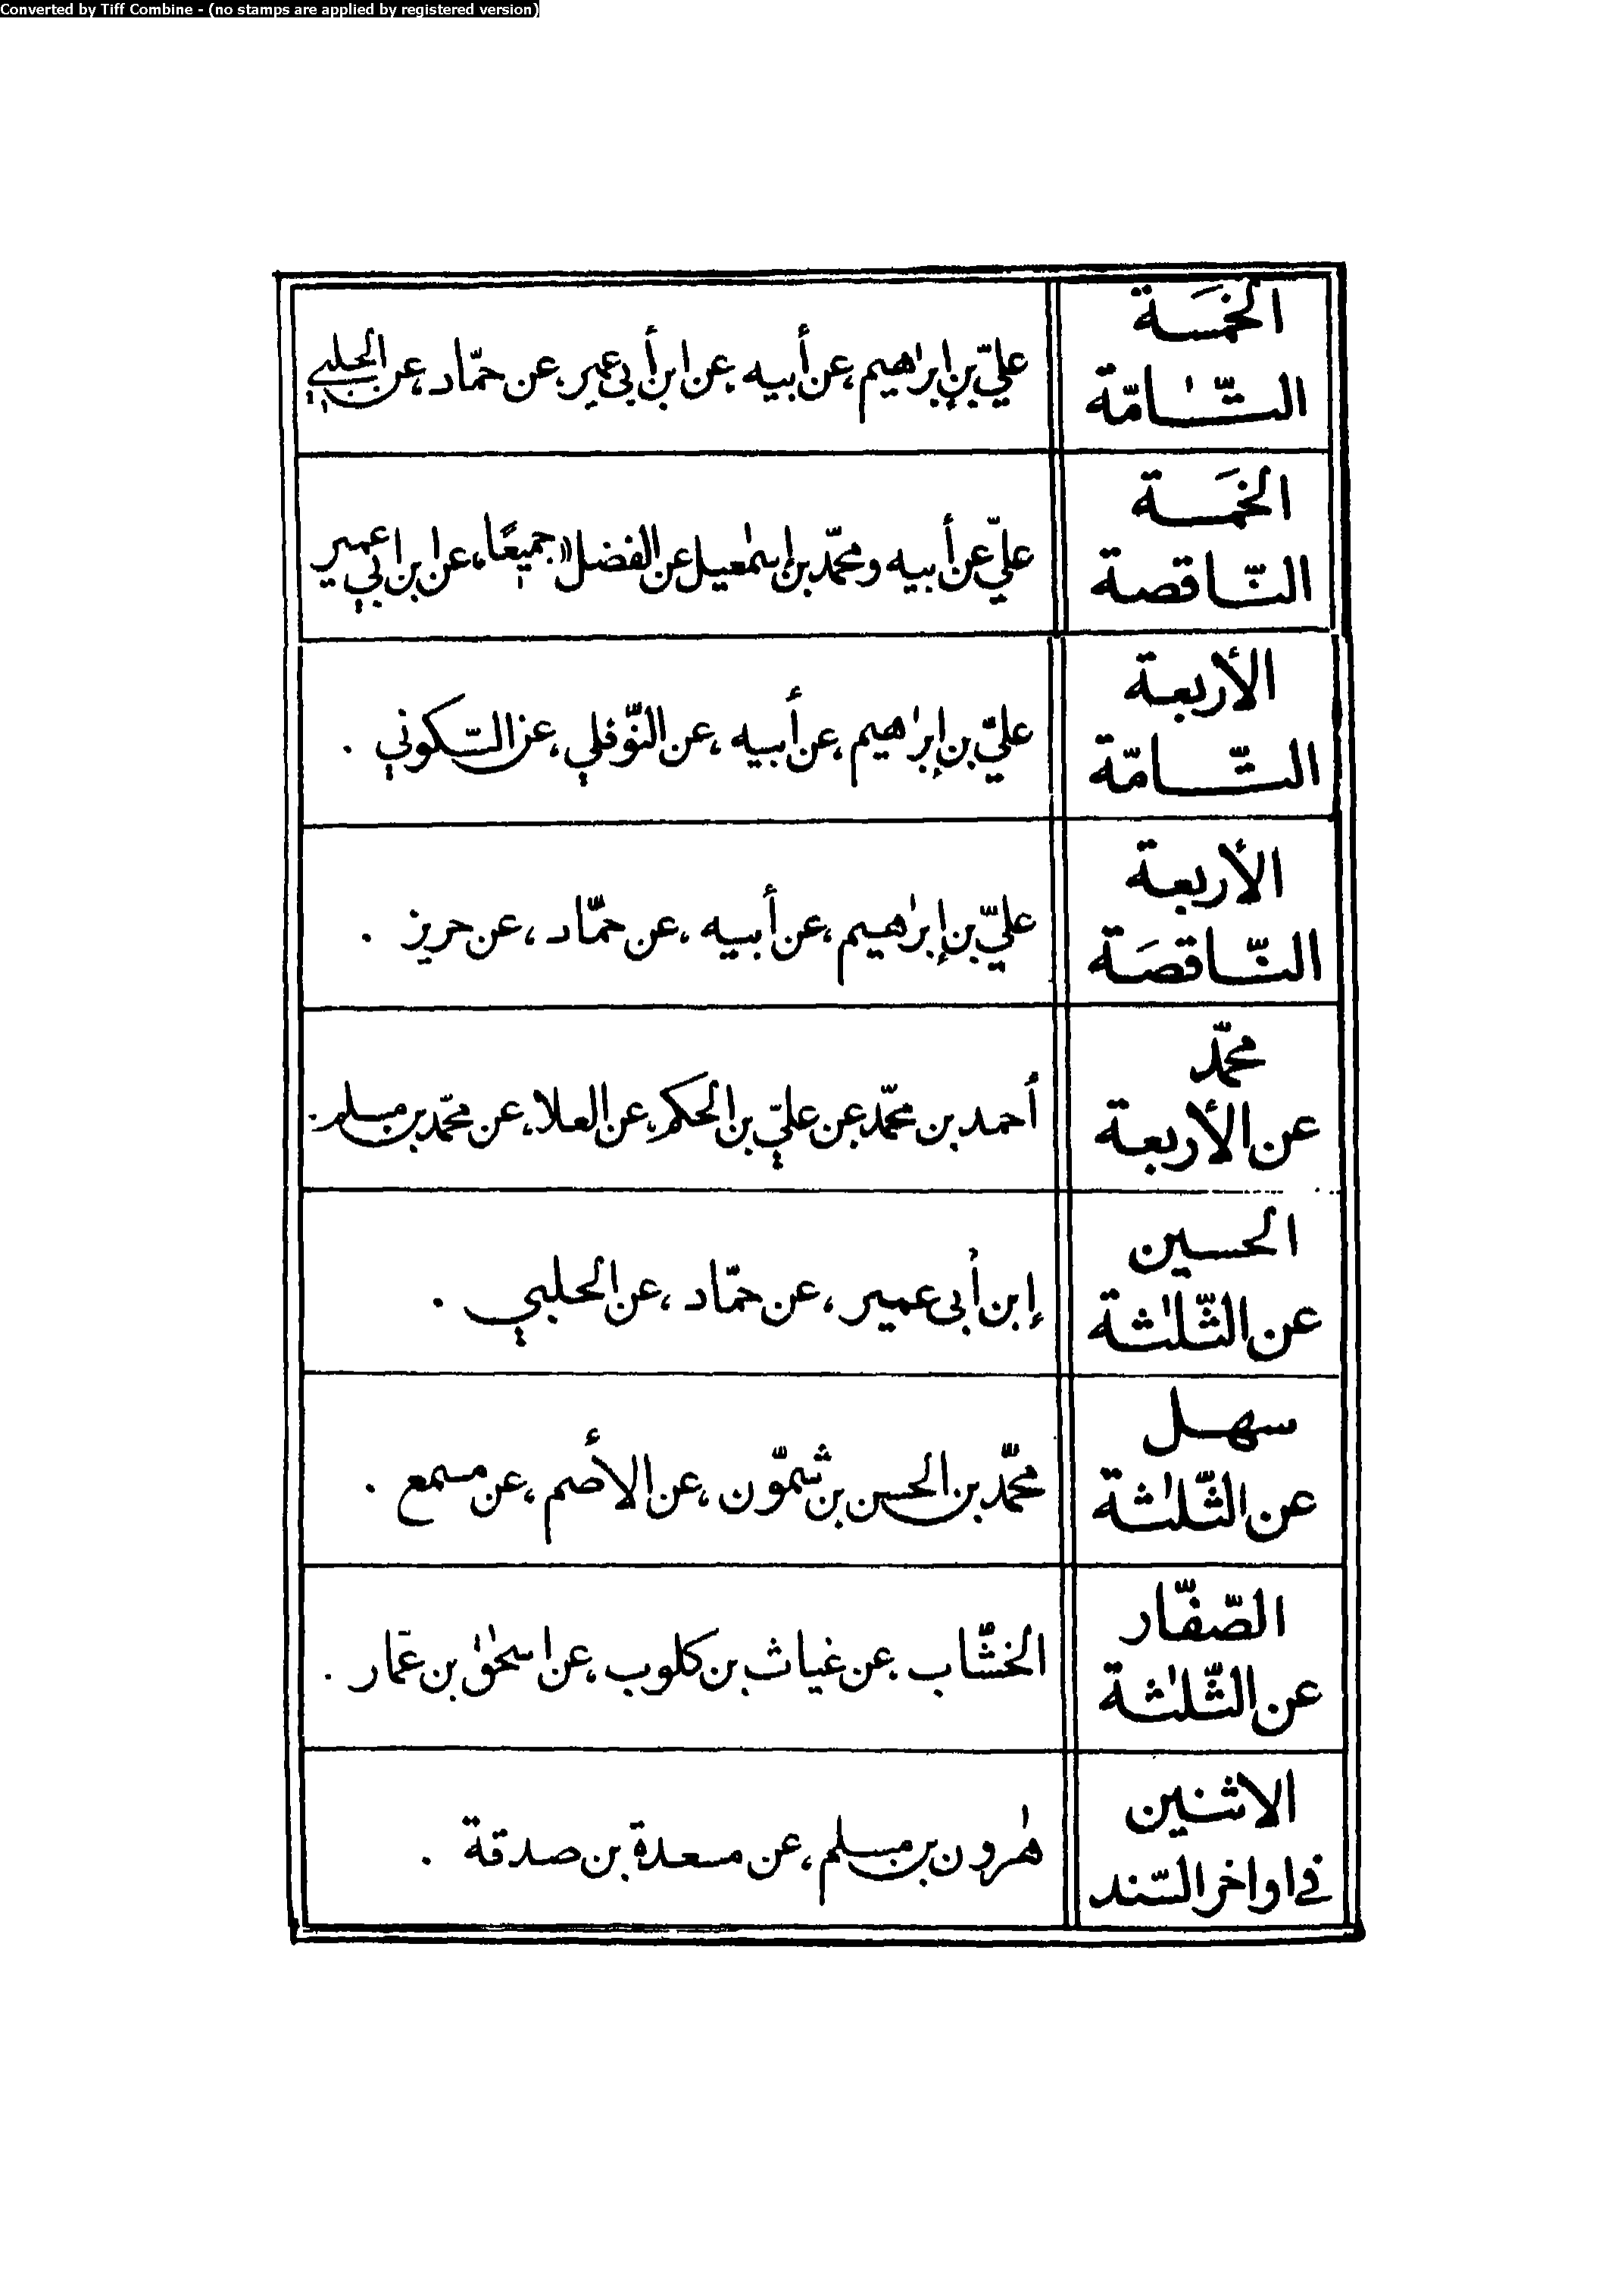 Converted by Tiff Combine - (no stamps are applied by registered version)
الخمسَة
التّامّة
عليّ بن إبرٰاهيم، عن أبيه، عن ابن أبي عمير، عن حمّاد، عن الحلبي
الخمسَة
النّاقصة
عليّ عن أبيه ومحمّد بن إسمٰعيل عن الفضل «جميعًا»، عن ابن ابي عمير
الأربعة
التّامّة
عليّ بن إبرٰاهيم، عن أبيه، عن النّوفلي، عن السّكوني .
الأربعة
النّاقصَة
عليّ بن إبرٰاهيم، عن أبيه، عن حمّاد، عن حريز .
محمّد
عن الأربعة
أحمد بن محمّد عن عليّ بن الحكم، عن العلا، عن محمّد بن مسلم .
الحسين
عن الثّلٰثة
إبن أبى عمير، عن حمّاد، عن الحلبي .
سهل
عن الثّلٰثة
محمّد بن الحسن بن شمّون، عن الأصم، عن مسمع .
الصّفّار
عن الثّلٰثة
الخشّاب، عن غياث بن كلوب، عن اسحٰق بن عمّار .
الاثنين
في اواخر السّند
هٰرون بن مسلم، عن مسعدة بن صدقة .